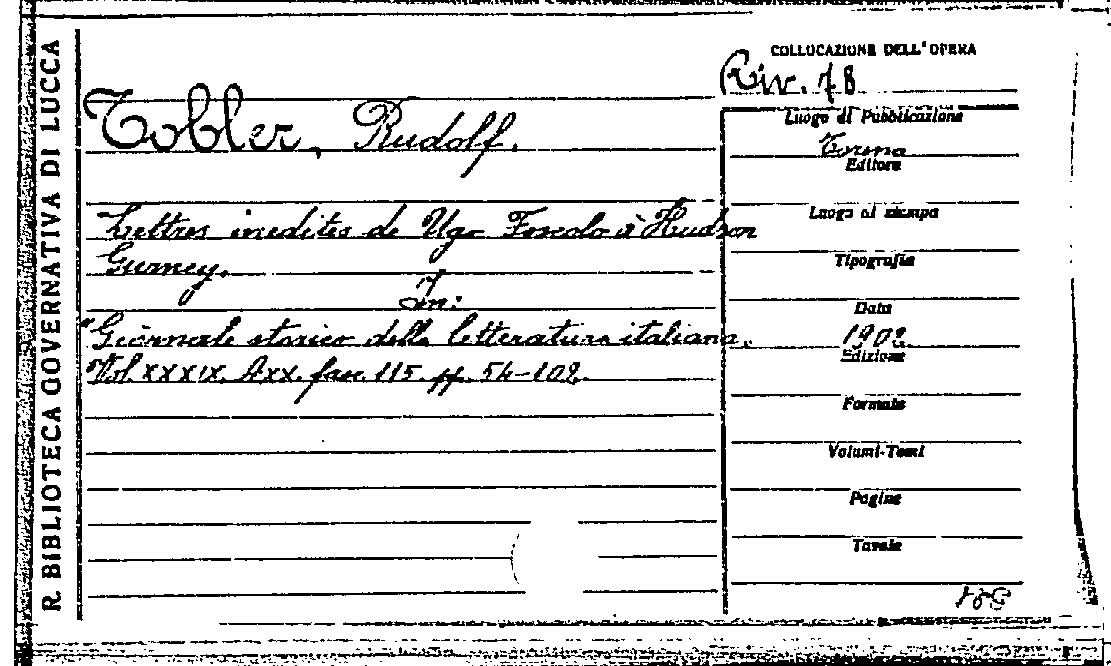 R. BIBLIOTECA GOVERNATIVA DI LUCCA
COLLOCAZIONE DELL'OPERA
Riv. 78
Tobler, Rudolf.
Luogo di Pubblicazione
Torino
Editore
Lettres inedites de Ugo Foscolo à Hudson
Gurney.
In:
"Giornale storico della letteratura italiana.
Vol. XXXIX. A XX. fasc. 115 pp. 54-102.
Luogo di stampa
Tipografia
Data
1902
Edizione
Formato
Volumi-Tomi
Pagine
Tavole